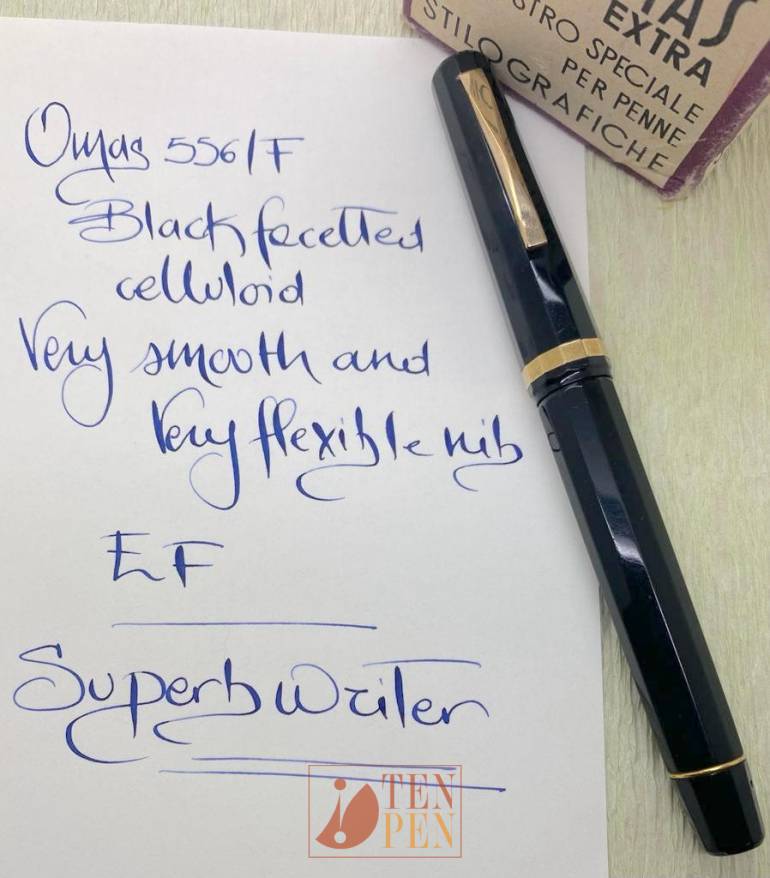 Omas 556/F
Black facetted
celluloid
Very smooth and
Very flexible nib
EF
Superb writer
EXTRA
STRO SPECIALE
PER PENNE
STILOGRAFICHE
TEN
PEN